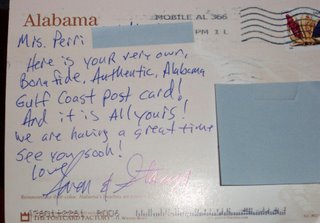 Alabama
MOBILE AL 366
PM 1 L
Mrs. Perri
Here is your very own,
Bonafide, Authentic, Alabama
Gulf Coast post card!
And it is All yours!
We are having a great time
See you soon!
Love,
&
THE POSTCARD FACTORY